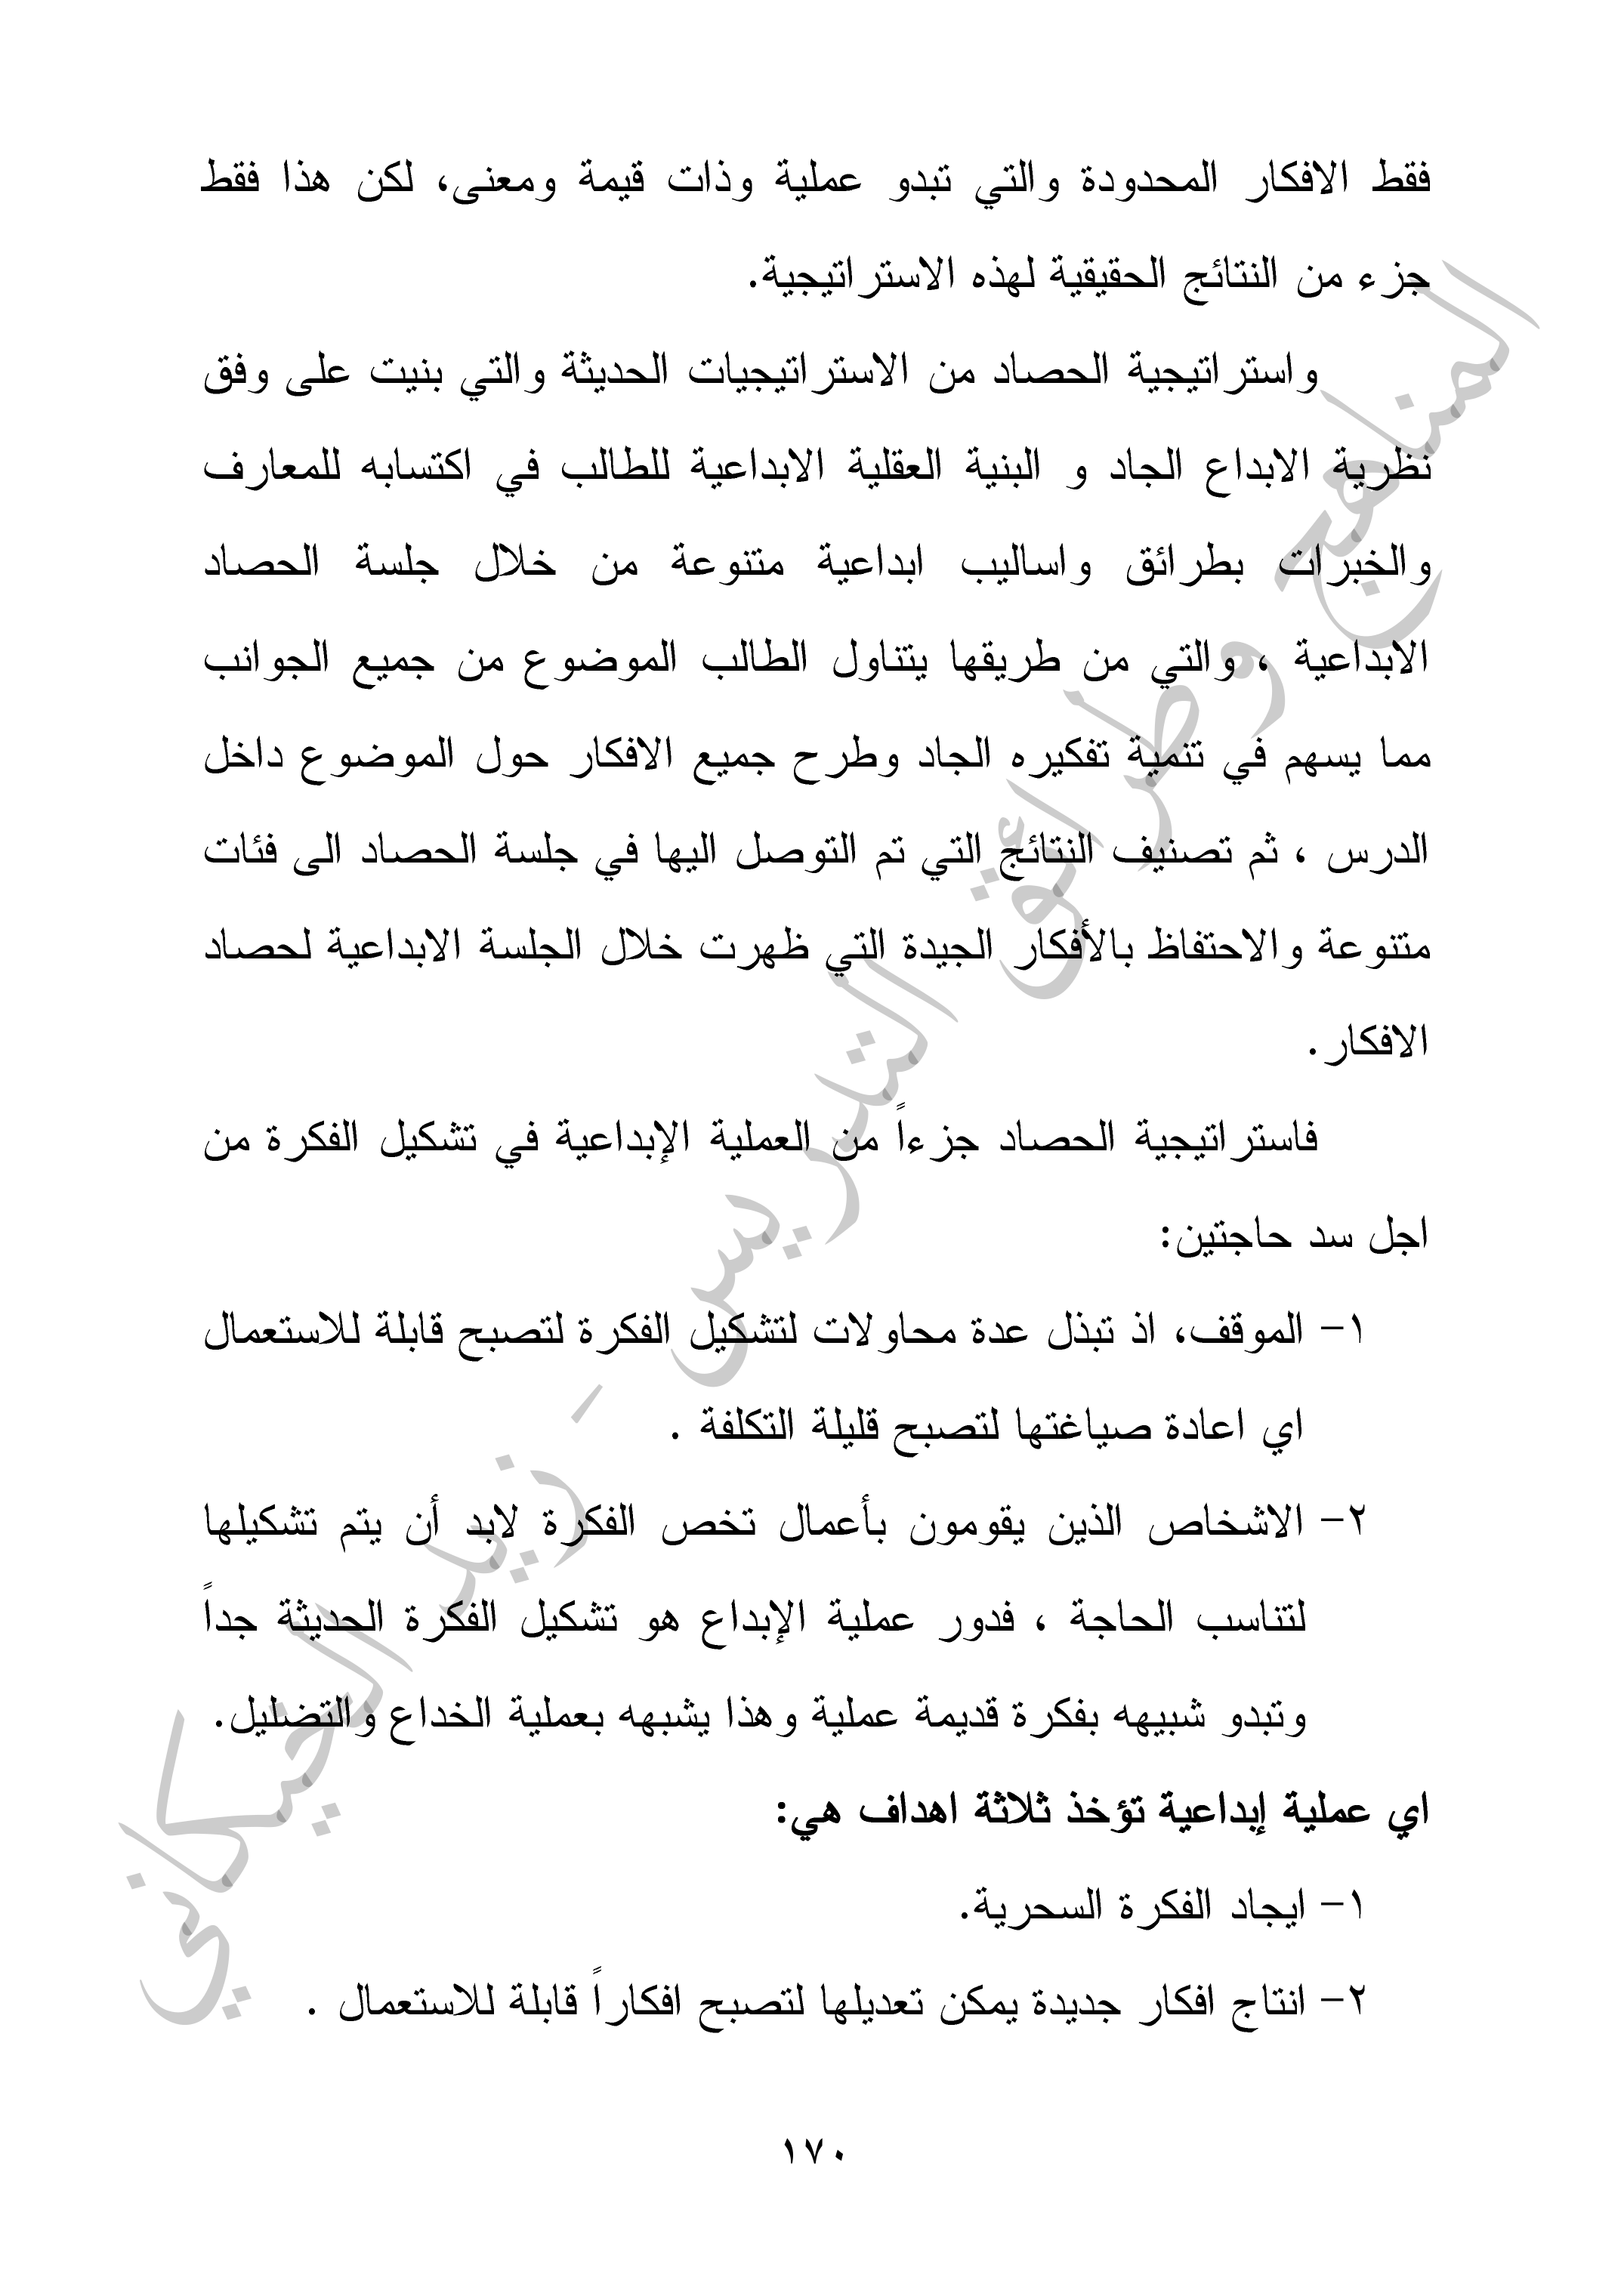 فقط الافكار المحدودة والتي تبدو عملية وذات قيمة ومعنى، لكن هذا فقط
جزء من النتائج الحقيقية لهذه الاستراتيجية.
واستراتيجية الحصاد من الاستراتيجيات الحديثة والتي بنيت على وفق
نظرية الابداع الجاد و البنية العقلية الابداعية للطالب في اكتسابه للمعارف
والخبرات بطرائق واساليب ابداعية متنوعة من خلال جلسة الحصاد
الابداعية ، والتي من طريقها يتناول الطالب الموضوع من جميع الجوانب
مما يسهم في تنمية تفكيره الجاد وطرح جميع الافكار حول الموضوع داخل
الدرس ، ثم تصنيف النتائج التي تم التوصل اليها في جلسة الحصاد الى فئات
متنوعة والاحتفاظ بالأفكار الجيدة التي ظهرت خلال الجلسة الابداعية لحصاد
الافكار.
فاستراتيجية الحصاد جزءاً من العملية الإبداعية في تشكيل الفكرة من
اجل سد حاجتين:
١- الموقف، اذ تبذل عدة محاولات لتشكيل الفكرة لتصبح قابلة للاستعمال
اي اعادة صياغتها لتصبح قليلة التكلفة .
٢- الاشخاص الذين يقومون بأعمال تخص الفكرة لابد أن يتم تشكيلها
لتناسب الحاجة ، فدور عملية الإبداع هو تشكيل الفكرة الحديثة جداً
وتبدو شبيهه بفكرة قديمة عملية وهذا يشبهه بعملية الخداع والتضليل.
اي عملية إبداعية تؤخذ ثلاثة اهداف هي:
١- ايجاد الفكرة السحرية.
٢- انتاج افكار جديدة يمكن تعديلها لتصبح افكاراً قابلة للاستعمال .
١٧٠
المناهج وطرائق التدريس - زيد الخيكاني